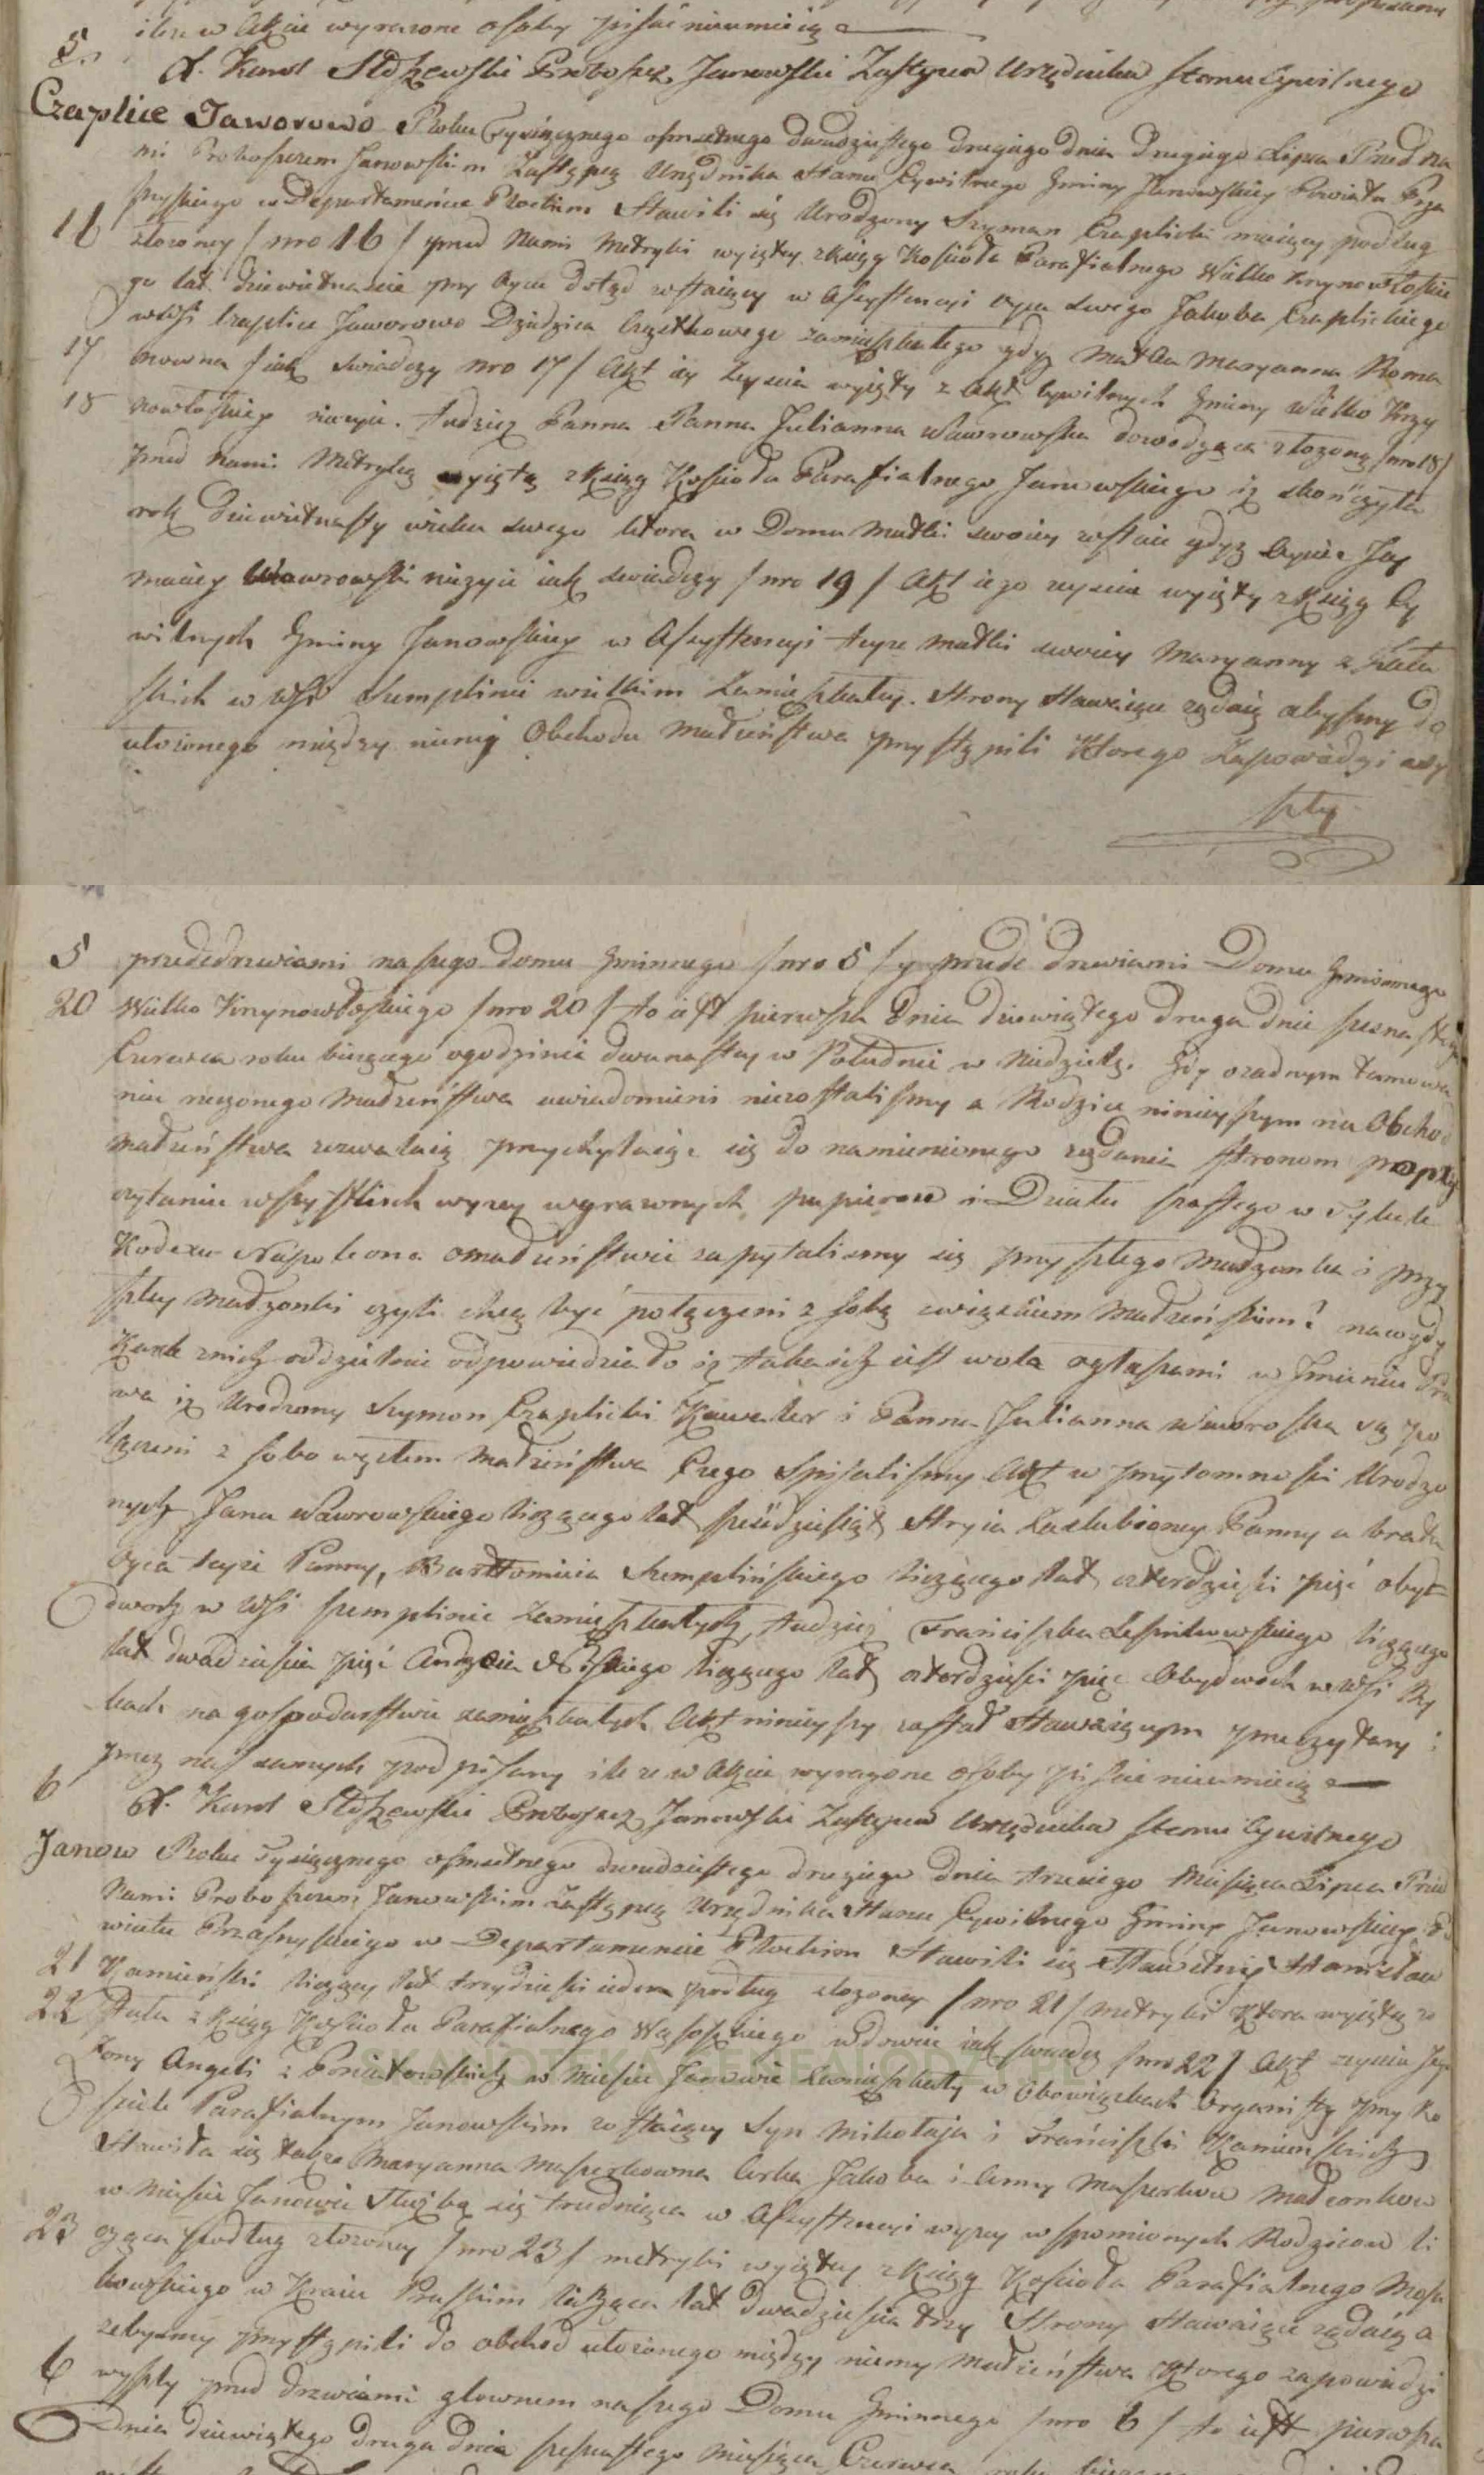 ile w Akcie wyrazone osoby pisać nieumieią
5. X. Karol Słdszewski Proboszcz Janowski Zastępca Urzędnika Stanu Cywilnego
Czaplice Jaworowo Roku Tysiącznego osmsetnego dwudziestego drugiego dnia Drugiego Lipca Przed na
mi Proboszczem Janowskim Zastępcą Urzędnika Stanu Cywilnego Gminy Janowskiey Powiatu Prza
snyskiego w Departamencie Płockim Stawili się Urodzony Szyman Czaplicki maiący podług
16 złozoney / nro 16 / przed Nami Metryki wyiętey z Xiąg Kościoła Parafialnego Wielko Krzynowłoskie
go lat dziewietnascie przy Oycu dotąd zostaiący w Assystencyi oyca swego Jakoba Czaplickiego
w Wsi Czaplice Jaworowo Dziedzica Cząstkowego zamieszkałego gdyz Matka Maryanna Roma
17 nowna / iak swiadczy nro 17 / Akt iey Zeyscia wyięty z Akt Cywilnych Gminy Wielko Krzy
18 nowłoskiey nieżyie. Tudziez Panna Panna Julianna Wawrowska dowodząca złozoną / nro 18 /
przed Nami Metryką wyiętą z Xiąg Kościoła Parafialnego Janowskiego iz skończyła
rok dziewietnasty wieku swego ktora w Domu Matki swoiey zostaie gdyz Oyciec Jey
Maciey Wawrowski niezyie iak swiadczy / nro 19 / Akt iego zeyscia wyięty z Xiąg Cy
wilnych Gminy Janowskiey w Assystencyi teyze Matki swoiey Maryanny z
skich w Wsi Szemplinie wielkim Zamieszkałey. Strony Stawaiące ządaią abyśmy do
ułozonego między niemi Obchodu Małzeństwa przystąpili Ktorego Zapowiedzi wy
szły
5 przededrzwiami naszego domu gminnego / nro 5 / y przede drzwiami Domu Gminnego
20 Wielko Krzynowłoskiego / nro 20 / to iest pierwsza Dnia dziewiątego druga dnia szesnastego
Czerwca roku biezącego o godzinie dwunastey w Południe w Niedzielę. Gdy o zadnym tamowa
niu rzeczonego Małzeństwa uwiadomieni niezostaliśmy a Rodzice ninieyszym na Obchod
Małzeństwa zezwalaią przychylaiąc się do namienionego ządania stronom po prze
czytaniu wszystkich wyzey wyrazonych papierow i Działu szostego w Tytule
Kodexu Napoleona o małzeństwie zapytaliśmy się przyszłego Małzonka i przy
szłey Małzonki czyli chcą być połączeni z sobą związkiem Małzeńskim? na co gdy
Kazde z nich oddzielnie odpowiedziało iz taka ich iest wola ogłaszami w Imieniu Pra
wa iz Urodzony Szymon Czaplicki Kawaler i Panna Julianna Wawroska są po
łączeni z sobo węzłem Małzeństwa Czego Spisaliśmy Akt w przytomności Urodzo
nych Jana Wawrowskiego liczącego lat sześdziesiąt Stryia Zaslubioney Panny a brata
oyca teyze Panny, Bartłomieia Szemplińskiego liczącego lat czterdzieści pięć obyd
dwoch w Wsi Szemplinie Zamieszkałych, tudziez Franciszka Lesnikowskiego liczącego
lat dwadziescia pięć Andrzeia liczącego lat czterdzieści pięć Obydwoch w Wsi Ry
kach na gospodarstwie zamieszkałych Akt ninieyszy został Stawaiącym przeczytany i
przez nas samych podpisany ile ze w Akcie wyrazone osoby pisać nieumieią
6 X. Karol Słdszewski Proboszcz Janowski Zastępca Urzędnika Stanu Cywilnego
Janow Roku Tysiącznego osmsetnego dwudziestego drugiego dnia trzeciego Miesiąca Lipca Przed
Nami Proboszczem Janowskim Zastępcą Urzędnika Stanu Cywilnego Gminy Janowskiey Po
wiatu Przasnyskiego w Departamencie Płockim Stawili się Sławetny Stanisław
21 Kamieński liczący lat trzydzieści ieden podług złozoney / nro 21 / metryki Ktora wyięta zo
22 stała z Xiąg Kościoła Parafialnego Wąsoskiego wdowiec iak swiadczy / nro 22 / Akt zeyscia Jego
Zony Angeli z Poniatowskich w Miescie Janowie Zamieszkały w Obowiązkach Organisty przy Ko
sciele Parafialnym Janowskim zostaiący Syn Mikołaja i Franciszki Kamienskich
Stawiła się takze Maryanna Maszczkowna Corka Jakoba i Anny Maszczkow Małzonkow
w Miescie Janowie Służbą się trudniąca w Assystencyi wyzey wspomionych Rodzicow li
23 cząca podług złozoney / nro 23 / metryki wyiętey z Xiąg Kościoła Parafialnego Mosa
kowskiego w Kraiu Pruskim licząca lat dwadziescia trzy Strony Stawaiące ządaią a
zebysmy przystąpili do obchod ułozonego między niemy Małzeństwa Ktorego zapowiedzi
6 wyszły przed drzwiami głownem naszego Domu Gminnego / nro 6 / to iest pierwsza
Dnia dziewiątego druga dnia szesnastego Miesiąca Czerwca